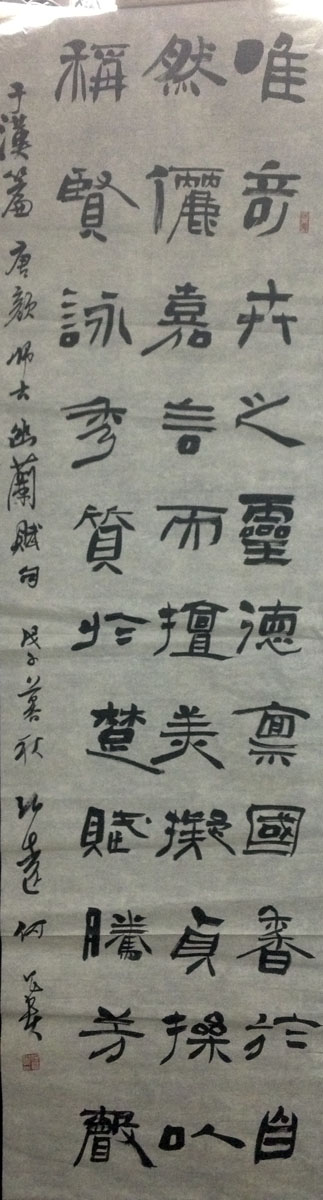 唯奇卉之靈德稟國香於自
然儷嘉言而擅美擬貞操以
稱賢詠秀質於楚賦騰芳聲
于漢篇 唐顔師古幽蘭賦句 戊子暮秋 何